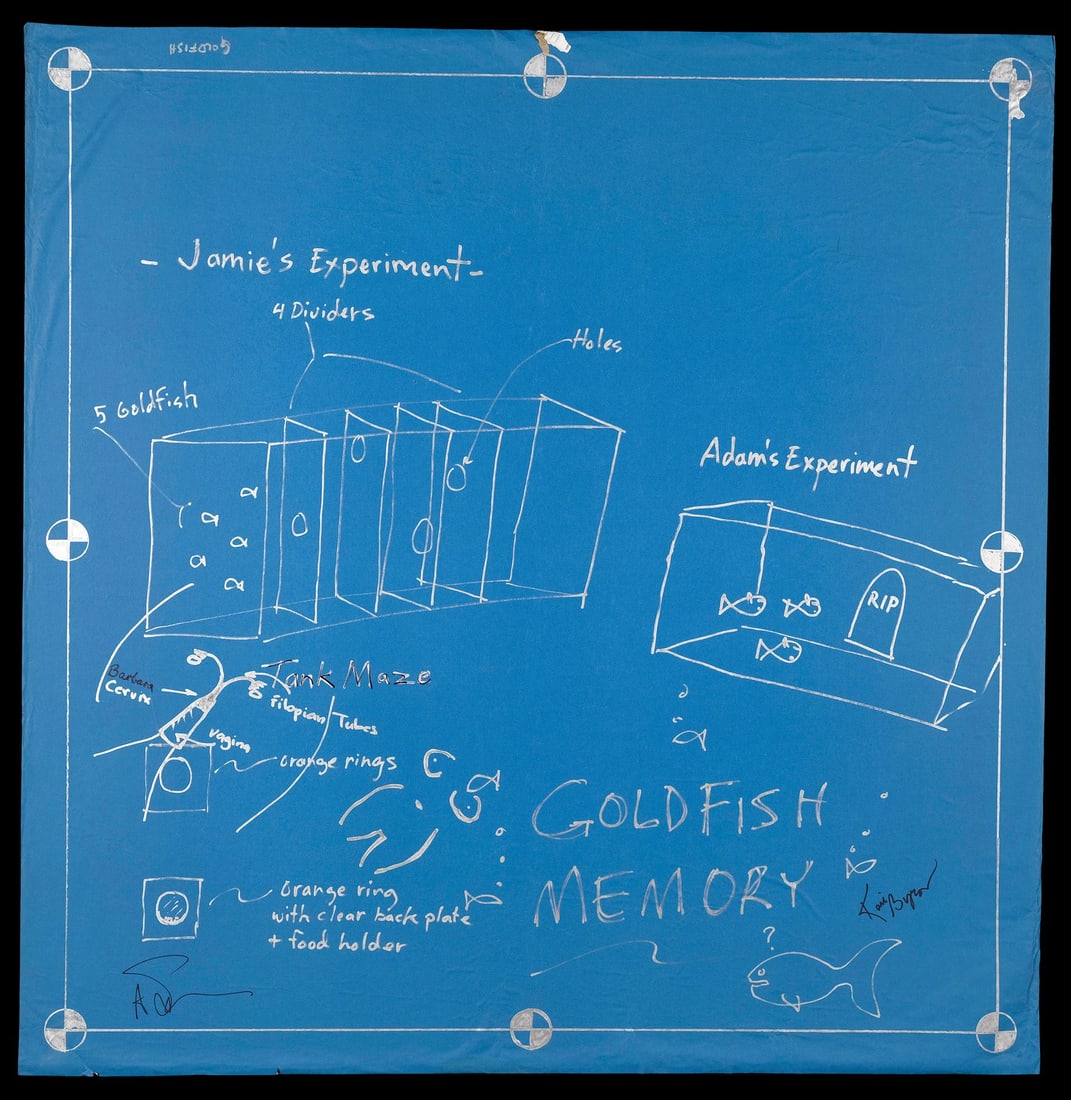 GOLDFISH
- Jamie's Experiment -
4 Dividers
Holes
5 Goldfish
Adam's Experiment
RIP
Tank Maze
Barbara
Cervix
Filopian Tubes
vagina
orange rings
GOLDFISH
MEMORY
orange ring
with clear back plate
+ food holder
?